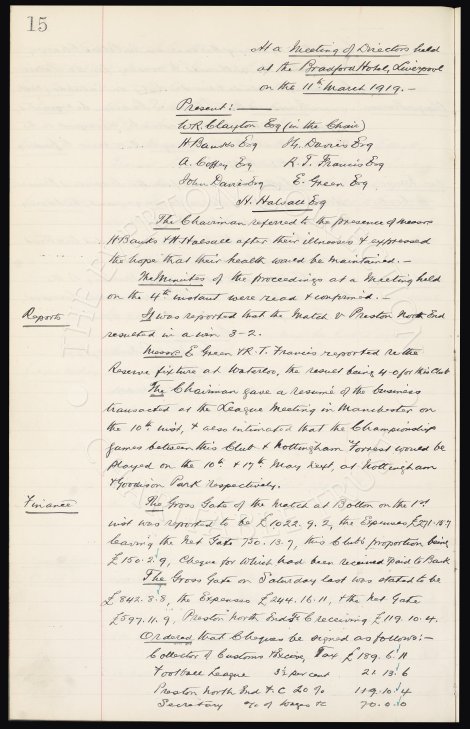 15
At a Meeting of Directors held
at the Bradford Hotel, Liverpool
on the 11th March 1919.-
Present:-
W.R. Clayton Esq (in the Chair)
H Banks Esq Dr. Davies Esq
A. Coffey Esq R. T. Francis Esq
John Davis Esq E. Green Esq
H. Halsall Esq
The Chairman referred to the presence of Messrs
H Banks & H Halsall after their illnesses & expressed
the hope that their health would be maintained.-
The Minutes of the proceedings at a Meeting held
on the 4th instant were read & confirmed.-
Reports
It was reported that the Match v Preston North End
resulted in a win 3-2.
Messrs E Green & R. T. Francis reported re the
Reserve fixture at Waterloo, the result being 4-0 for this Club
The Chairman gave a resumé of the business
transacted at the League Meeting in Manchester on
the 10th inst, & also intimated that the Championship
games between this Club & Nottingham Forrest would be
played on the 10th & 17th May next, at Nottingham
& Goodison Park respectively.
Finance
The Gross Gate of the Match at Bolton on the 1st
inst was reported to be £1022.9.2, the Expenses £271.15.7
leaving the Net Gate 750.13.7, this Club's proportion being
£150.2.9, Cheque for which had been received & paid to Bank
The Gross Gate on Saturday last was stated to be
£842.8.8, the Expenses £244.16.11, & the Net Gate
£597.11.9, Preston North End F C receiving £119.10.4.
Ordered that Cheques be signed as follows:-
Collector of Customs & Excise, Tax £189.6.11
Football League 3½ per cent 21.13.6
Preston North End F C 20% 119.10.4
Secretary a/c of Wages &c 70.0.0